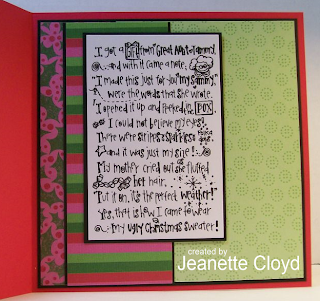 I got a gift from Great Aunt Tammy,
and with it came a note,
"I made this just for you my Sammy,"
were the words that she wrote.
I opened it up and peeked in the BOX
I could not believe my eyes!
There were stripes & sparkles &
and it was just my size!
My mother cried out as she fluffed
her hair,
"Put it on, it's the perfect weather!"
Yes, that is how I came to wear
My ugly Christmas sweater!
created by
Jeanette Cloyd